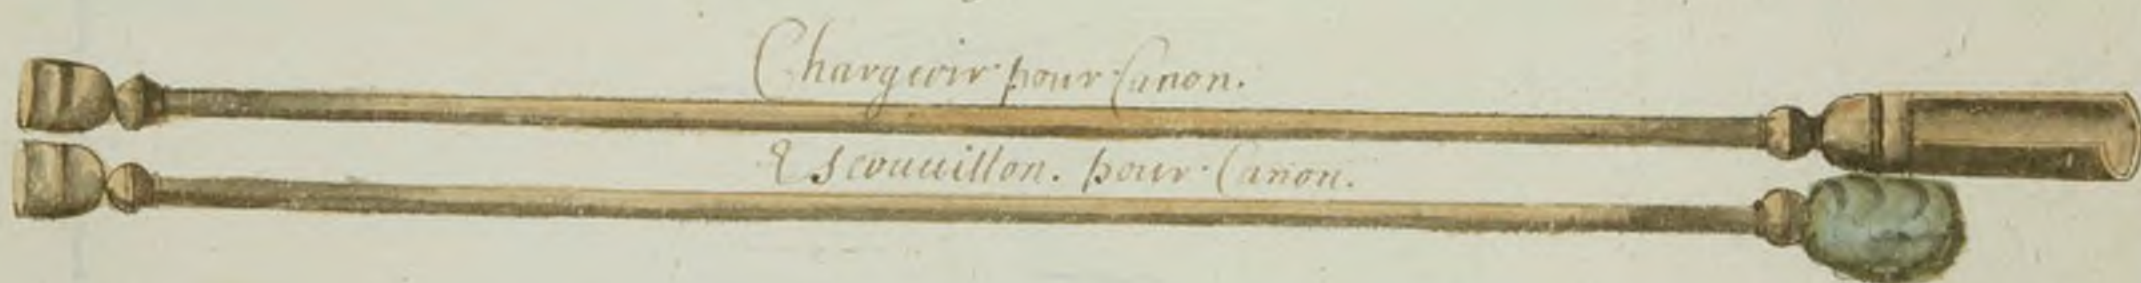 Chargeoir pour Canon.
Escouuillon. pour Canon.